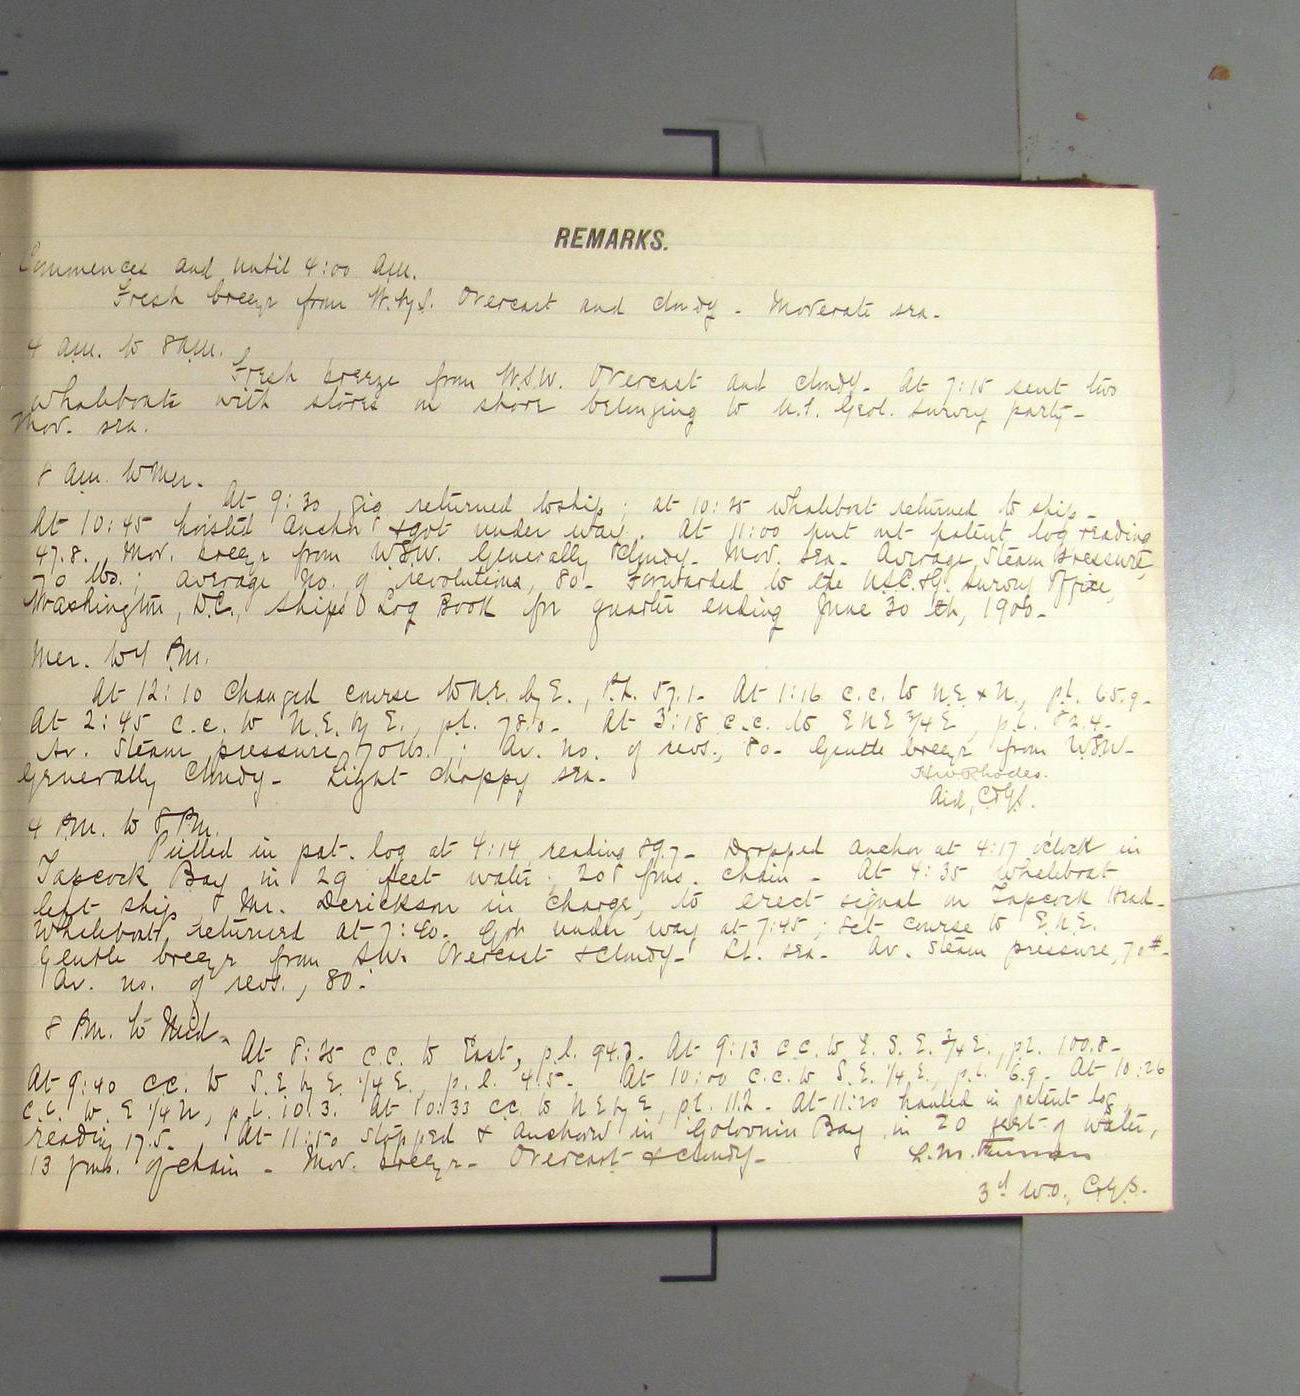 REMARKS.
Commences and until 4:00 A.M.
Fresh breeze from W. by S. Overcast and cloudy - Moderate sea -
4 A.M. to 8 A.M.
Fresh breeze from W.S.W. Overcast and cloudy - At 7:15 sent two
whaleboats with stores on shore belonging to U.S. Geol. Survey party -
Mov. sea.
8 A.M. to Mer.
At 9:30 gig returned to ship; at 10:35 whaleboat returned to ship -
At 10:45 hoisted anchor & got under way. At 11:00 put out patent log reading
47.8. Mov. breeze from WSW. Generally cloudy. Mov. sea - Average Steam pressure,
70 lbs.; average no. of revolutions, 80 - Forwarded to the U.S.C.&G. Survey Office,
Washington, D.C., Ship's Log Book for quarter ending June 30th, 1900 -
Mer. to 4 P.M.
At 12:10 changed course to N.E. by E., P.L. 57.1 - At 1:16 c.c. to N.E. x N., p.l. 65.9 -
At 2:45 c.c. to N.E. by E., p.l. 78.0 - At 3:18 c.c. to ENE 3/4 E, p.l. 82.4 -
Av. Steam pressure 70 lbs.; Av. no. of revs., 80 - Gentle breeze from WSW -
Generally cloudy - Light choppy sea -
H.W. Rhodes.
Aid, C&GS.
4 P.M. to 8 P.M.
Pulled in pat. log at 4:14 reading 89.7 - Dropped anchor at 4:17 o'clock in
Tapcock Bay in 29 feet water; 20 fms. chain - At 4:35 whaleboat
left ship, Mr. Derickson in charge, to erect signal on Tapcock Head -
Whaleboat returned at 7:40 - Got under way at 7:45; set course to E.N.E.
Gentle breeze from SW. Overcast & cloudy - Lt. sea - Av. Steam pressure, 70# -
Av. no. of revs., 80 -
8 P.M. to Mid -
At 8:35 c.c. to East, p.l. 94.7 - At 9:13 c.c. to E.S.E. 3/4 E., p.l. 100.8 -
At 9:40 c.c. to S.E. by E. 1/4 E., p.l. 4.5 - At 10:00 c.c. to S.E. 1/4 E., p.l. 6.9 - At 10:26
c.c. to E 1/4 N, p.l. 10.3. At 10:33 c.c. to N E by E, p.l. 11.2 - At 11:20 hauled in patent log,
reading 17.5 - At 11:50 stopped & anchored in Golovnin Bay in 20 feet of water,
13 fms. of chain - Mov. breeze - Overcast & cloudy -
L.M. Furman
3d W.O., C&GS.